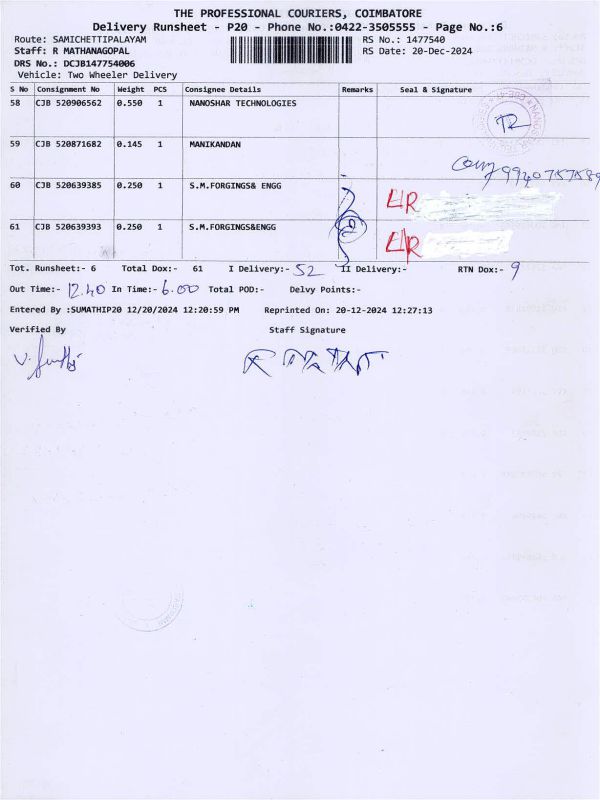 THE PROFESSIONAL COURIERS, COIMBATORE
Delivery Runsheet - P20 - Phone No.:0422-3505555 - Page No.:6
Route: SAMICHETTIPALAYAM RS No.: 1477540
Staff: R MATHANAGOPAL RS Date: 20-Dec-2024
DRS No.: DCJB147754006
Vehicle: Two Wheeler Delivery
S No Consignment No Weight PCS Consignee Details Remarks Seal & Signature
58 CJB 520906562 0.550 1 NANOSHAR TECHNOLOGIES
59 CJB 520871682 0.145 1 MANIKANDAN
60 CJB 520639385 0.250 1 S.M.FORGINGS& ENGG
61 CJB 520639393 0.250 1 S.M.FORGINGS&ENGG
Tot. Runsheet:- 6 Total Dox:- 61 I Delivery:- 52 II Delivery:- RTN Dox:- 9
Out Time:- 12.40 In Time:- 6.00 Total POD:- Delvy Points:-
Entered By :SUMATHIP20 12/20/2024 12:20:59 PM Reprinted On: 20-12-2024 12:27:13
Verified By Staff Signature